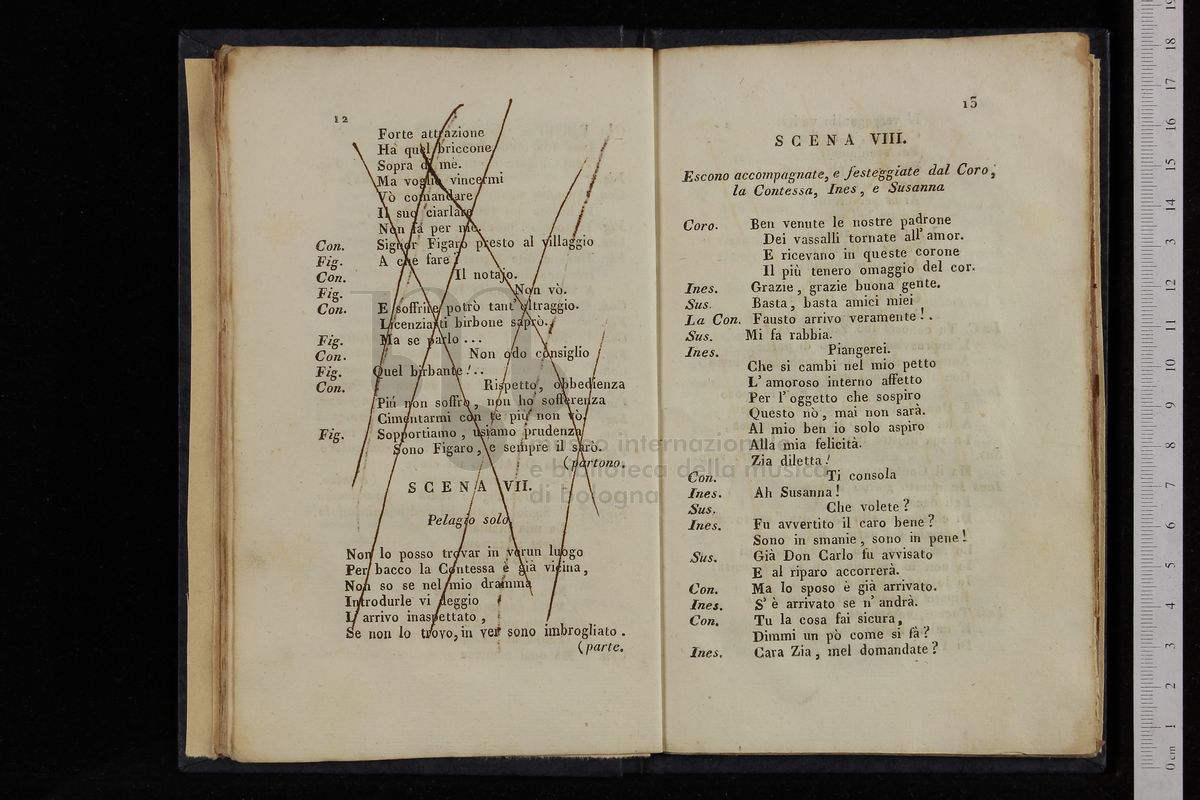 12
Forte attrazione
Ha quel briccone,
Sopra di mè.
Ma voglio vincermi
Vò comandare
Il suo ciarlare
Non fa per me.
Con. Signor Figaro presto al villaggio
Fig. A che fare?
Con. Il notajo.
Fig. Non vò.
Con. E soffrire potrò tant' oltraggio.
Licenziarti birbone saprò.
Fig. Ma se parlo ...
Con. Non odo consiglio
Fig. Quel birbante!..
Con. Rispetto, obbedienza
Più non soffro, non ho sofferenza
Cimentarmi con te più non vò.
Fig. Sopportiamo, usiamo prudenza
Sono Figaro, e sempre il sarò.
(partono.
SCENA VII.
Pelagio solo.
Non lo posso trovar in verun luogo
Per bacco la Contessa è già vicina,
Non so se nel mio dramma
Introdurle vi deggio
L' arrivo inaspettato,
Se non lo trovo, in ver sono imbrogliato.
(parte.
13
SCENA VIII.
Escono accompagnate, e festeggiate dal Coro,
la Contessa, Ines, e Susanna
Coro. Ben venute le nostre padrone
Dei vassalli tornate all' amor.
E ricevano in queste corone
Il più tenero omaggio del cor.
Ines. Grazie, grazie buona gente.
Sus. Basta, basta amici miei
La Con. Fausto arrivo veramente!.
Sus. Mi fa rabbia.
Ines. Piangerei.
Che si cambi nel mio petto
L' amoroso interno affetto
Per l' oggetto che sospiro
Questo nò, mai non sarà.
Al mio ben io solo aspiro
Alla mia felicità.
Zia diletta!
Con. Ti consola
Ines. Ah Susanna!
Sus. Che volete?
Ines. Fu avvertito il caro bene?
Sono in smanie, sono in pene!
Sus. Già Don Carlo fu avvisato
E al riparo accorrerà.
Con. Ma lo sposo è già arrivato.
Ines. S' è arrivato se n' andrà.
Con. Tu la cosa fai sicura,
Dimmi un pò come si fà?
Ines. Cara Zia, mel domandate?
museo internazionale
e biblioteca della musica
di bologna
0 cm 1 2 3 4 5 6 7 8 9 10 11 12 13 14 15 16 17 18 19